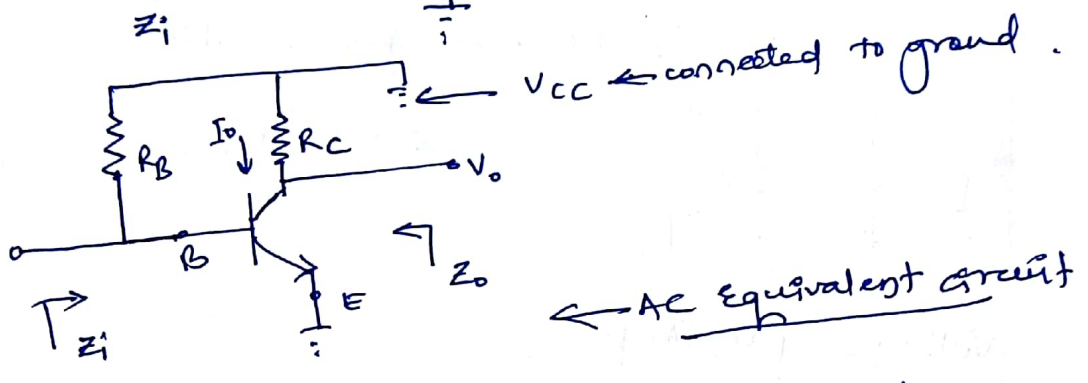 Zi
VCC ← connected to ground.
Io
RC
RB
Vo
B
Zo
E
← AC Equivalent circuit
Zi